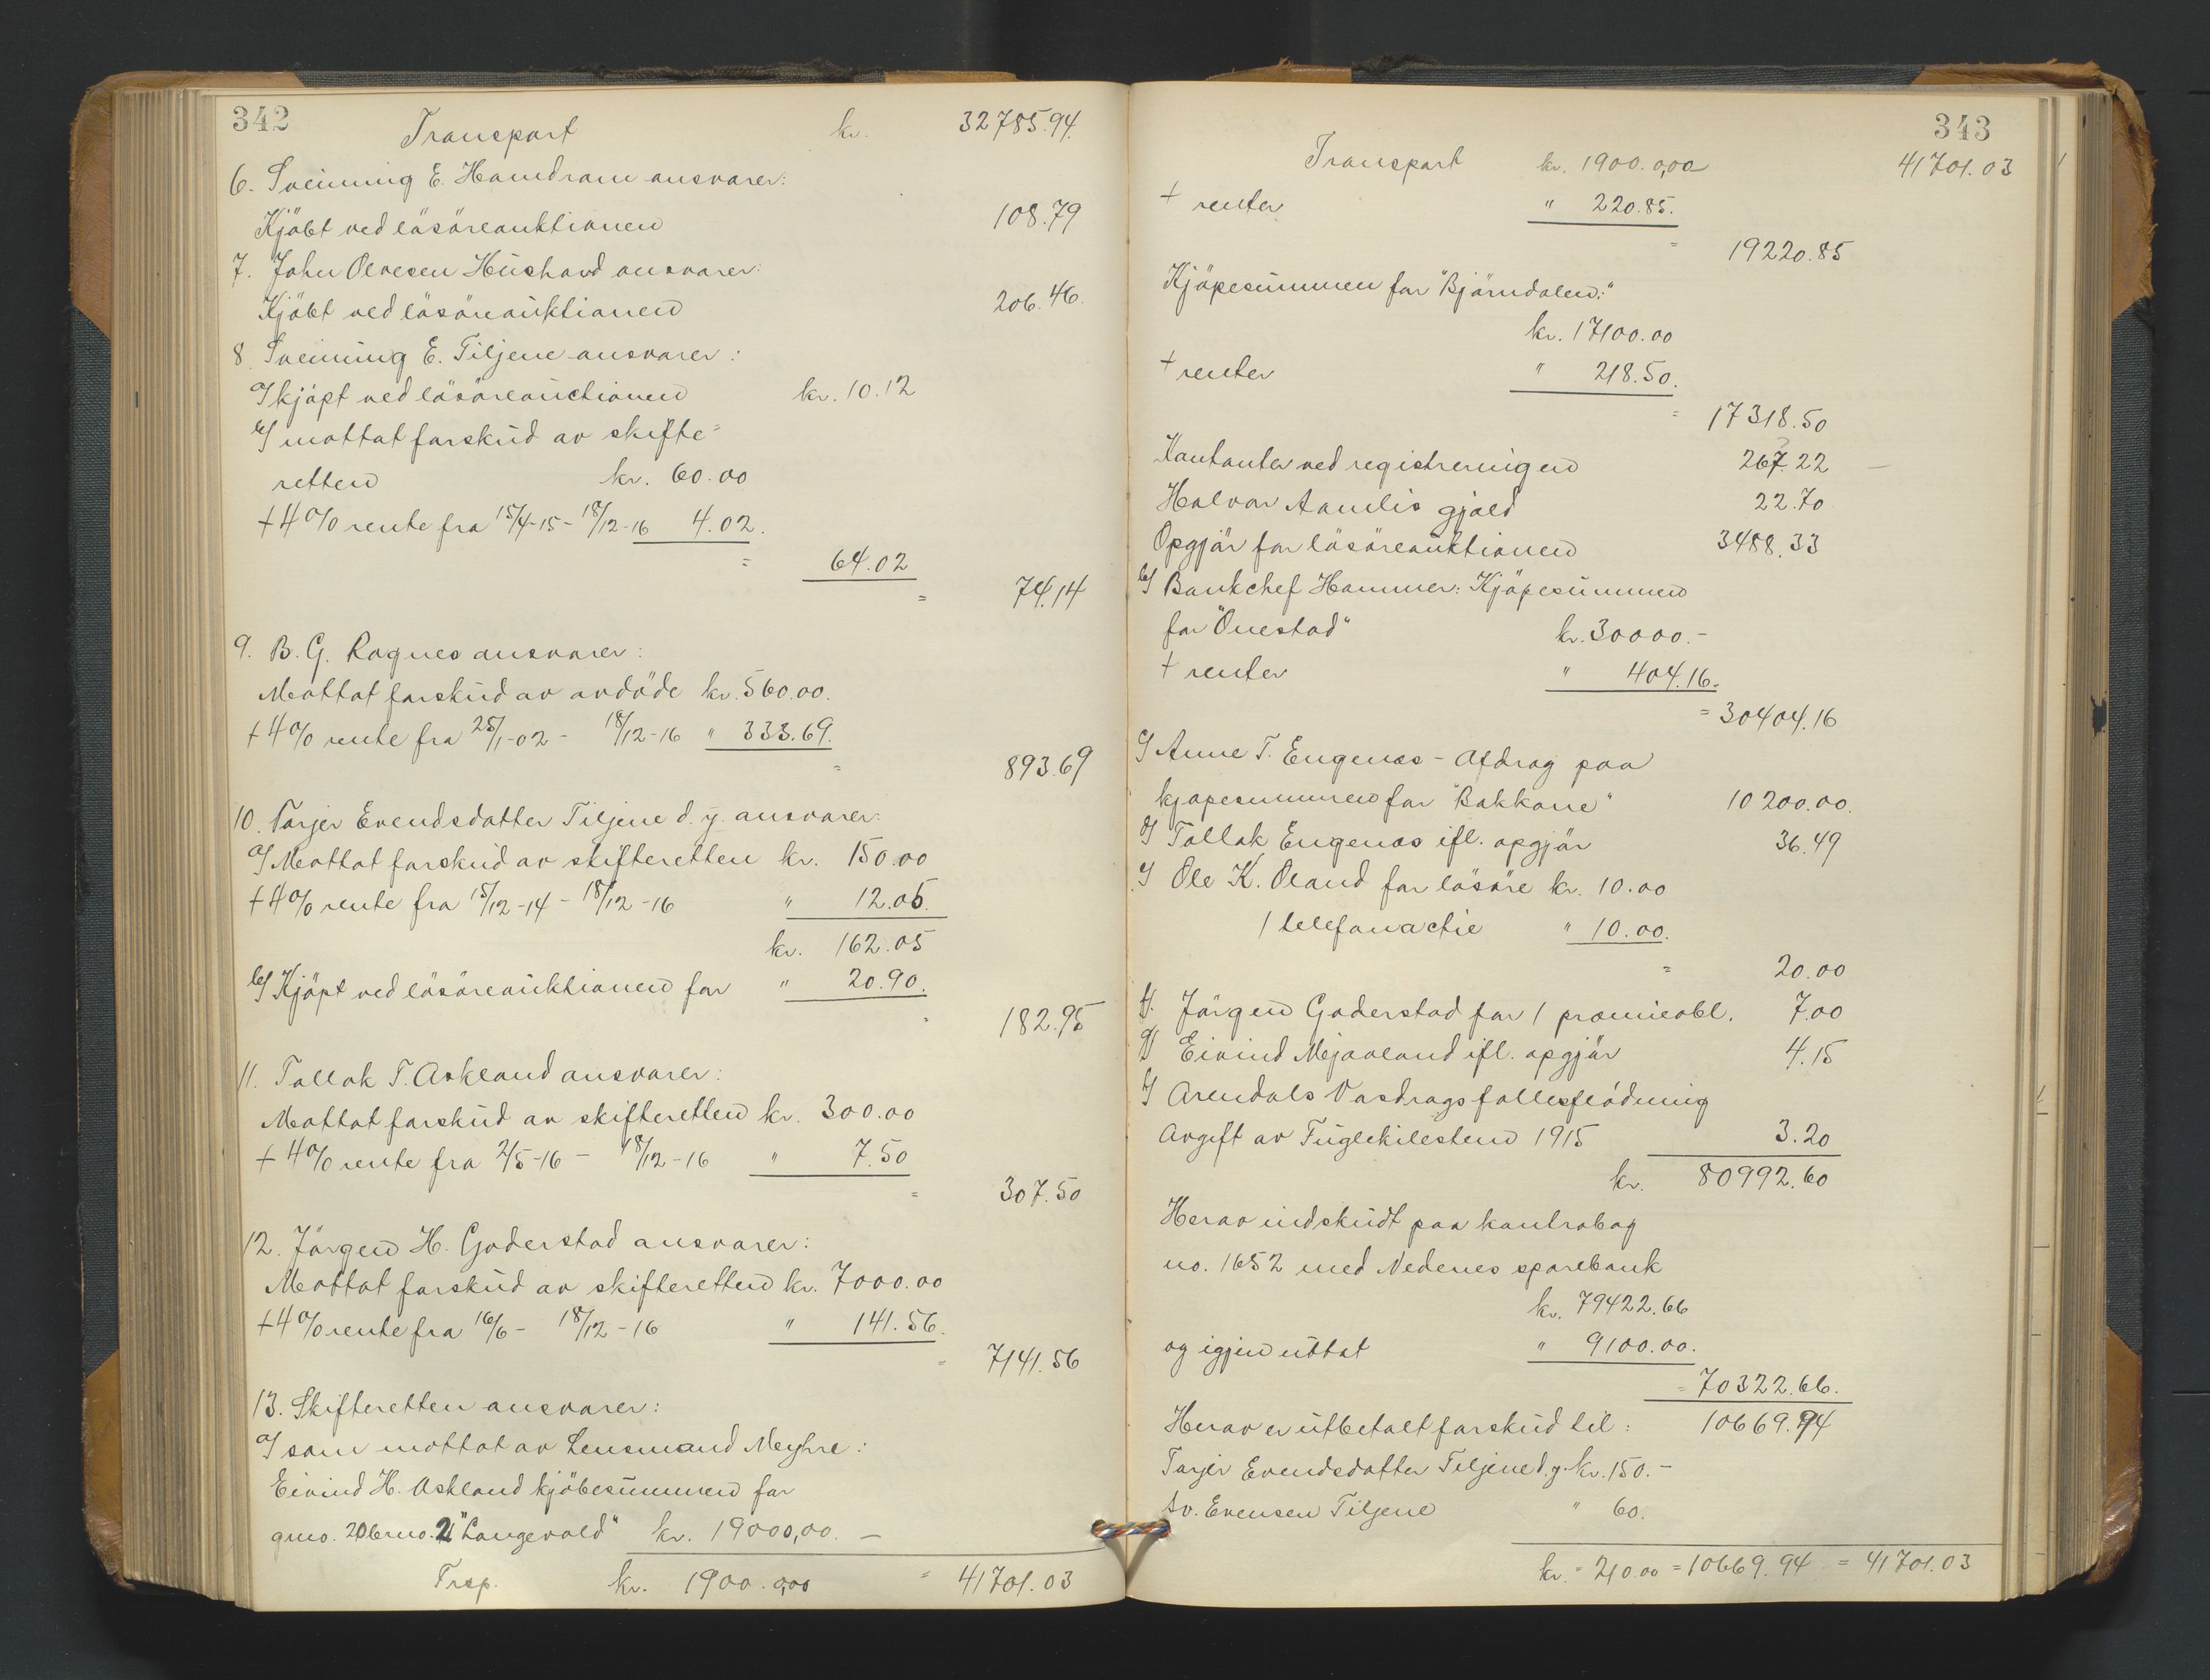 342
Transport kr. 32785.94.
6. Sveinung E. Hamdram ansvarer:
Kjöbt ved lösöreauktionen 108.79
7. John Olvesen Hushovd ansvarer:
Kjöbt ved lösöreauktionen 206.46.
8 Sveinung E. Tiljene ansvarer:
a/ kjöpt ved lösöreauctionen kr. 10.12
b/ mottat forskud av skifte=
retten kr. 60.00
+ 4% rente fra 15/4-15 - 18/12-16 4.02.
= 64.02
= 74.14
9. B. G. Rognes ansvarer:
Mottat forskud av avdöde kr. 560.00.
+ 4% rente fra 25/1-02 - 18/12-16 " 333.69.
= 893.69
10. Torjer Evendsdatter Tiljene d. y. ansvarer:
a/ Mottat forskud av skifteretten kr. 150.00
+ 4% rente fra 15/12-14 - 18/12-16 " 12.05.
kr. 162.05
b/ Kjöpt ved lösöreauktionen for " 20.90.
= 182.95
11. Tollak T. Askland ansvarer:
Mottat forskud av skifteretten kr. 300.00
+ 4% rente fra 2/5-16 - 18/12-16 " 7.50
= 307.50
12. Jörgen H. Goderstad ansvarer:
Mottat forskud av skifteretten kr. 7000.00
+ 4% rente fra 16/6 - 18/12-16 " 141.56.
= 7141.56
13. Skifteretten ansvarer:
a/ som mottat av Lensmand Meyhre:
Eivind H. Askland kjöbesummen for
gno. 20 bno. 2 "Langevold" kr. 19000,00. —
Trsp. kr. 1900.0,00 = 41701.03
343
Transport kr. 1900.0,00 41701.03
+ renter " 220.85.
= 19220.85
Kjöpesummen for "Björndalen:"
kr. 17100.00
+ renter " 218.50.
= 17318.50
Kontanter ved registreringen 267.22 —
Halvor Aamlis gjæld 22.70
Opgjör for lösöreauktionen 3488.33
b/ Bankchef Hammer: Kjöpesummen
for "Ouestad" kr. 30000.-
+ renter " 404.16.
= 30404.16
c/ Anne T. Engenæs - Afdrag paa
kjöpesummen for "Bakkane" 10 200.00.
d/ Tollak Engenæs ifl. opgjör 36.49
e/ Ole K. Oland for lösöre kr. 10.00
1 telefonactie " 10.00.
= 20.00
f/. Jörgen Goderstad for 1 præmieobl. 7.00
g/ Eivind Mjaaland ifl. opgjör 4.15
h/ Arendals Vasdrags fællesflödning
Avgift av Fuglekilesten 1915 3.20
kr. 80992.60
Herav indskudt paa kontrabog
no. 1652 med Nedenes sparebank
kr. 79422.66
og igjen uttat " 9100.00.
= 70322.66.
Herav er utbetalt forskud til: 10669.94
Torjer Evendsdatter Tiljene d.y. kr. 150.-
Sv. Evensen Tiljene " 60.
kr. = 210.00 = 10669.94 = 41701.03